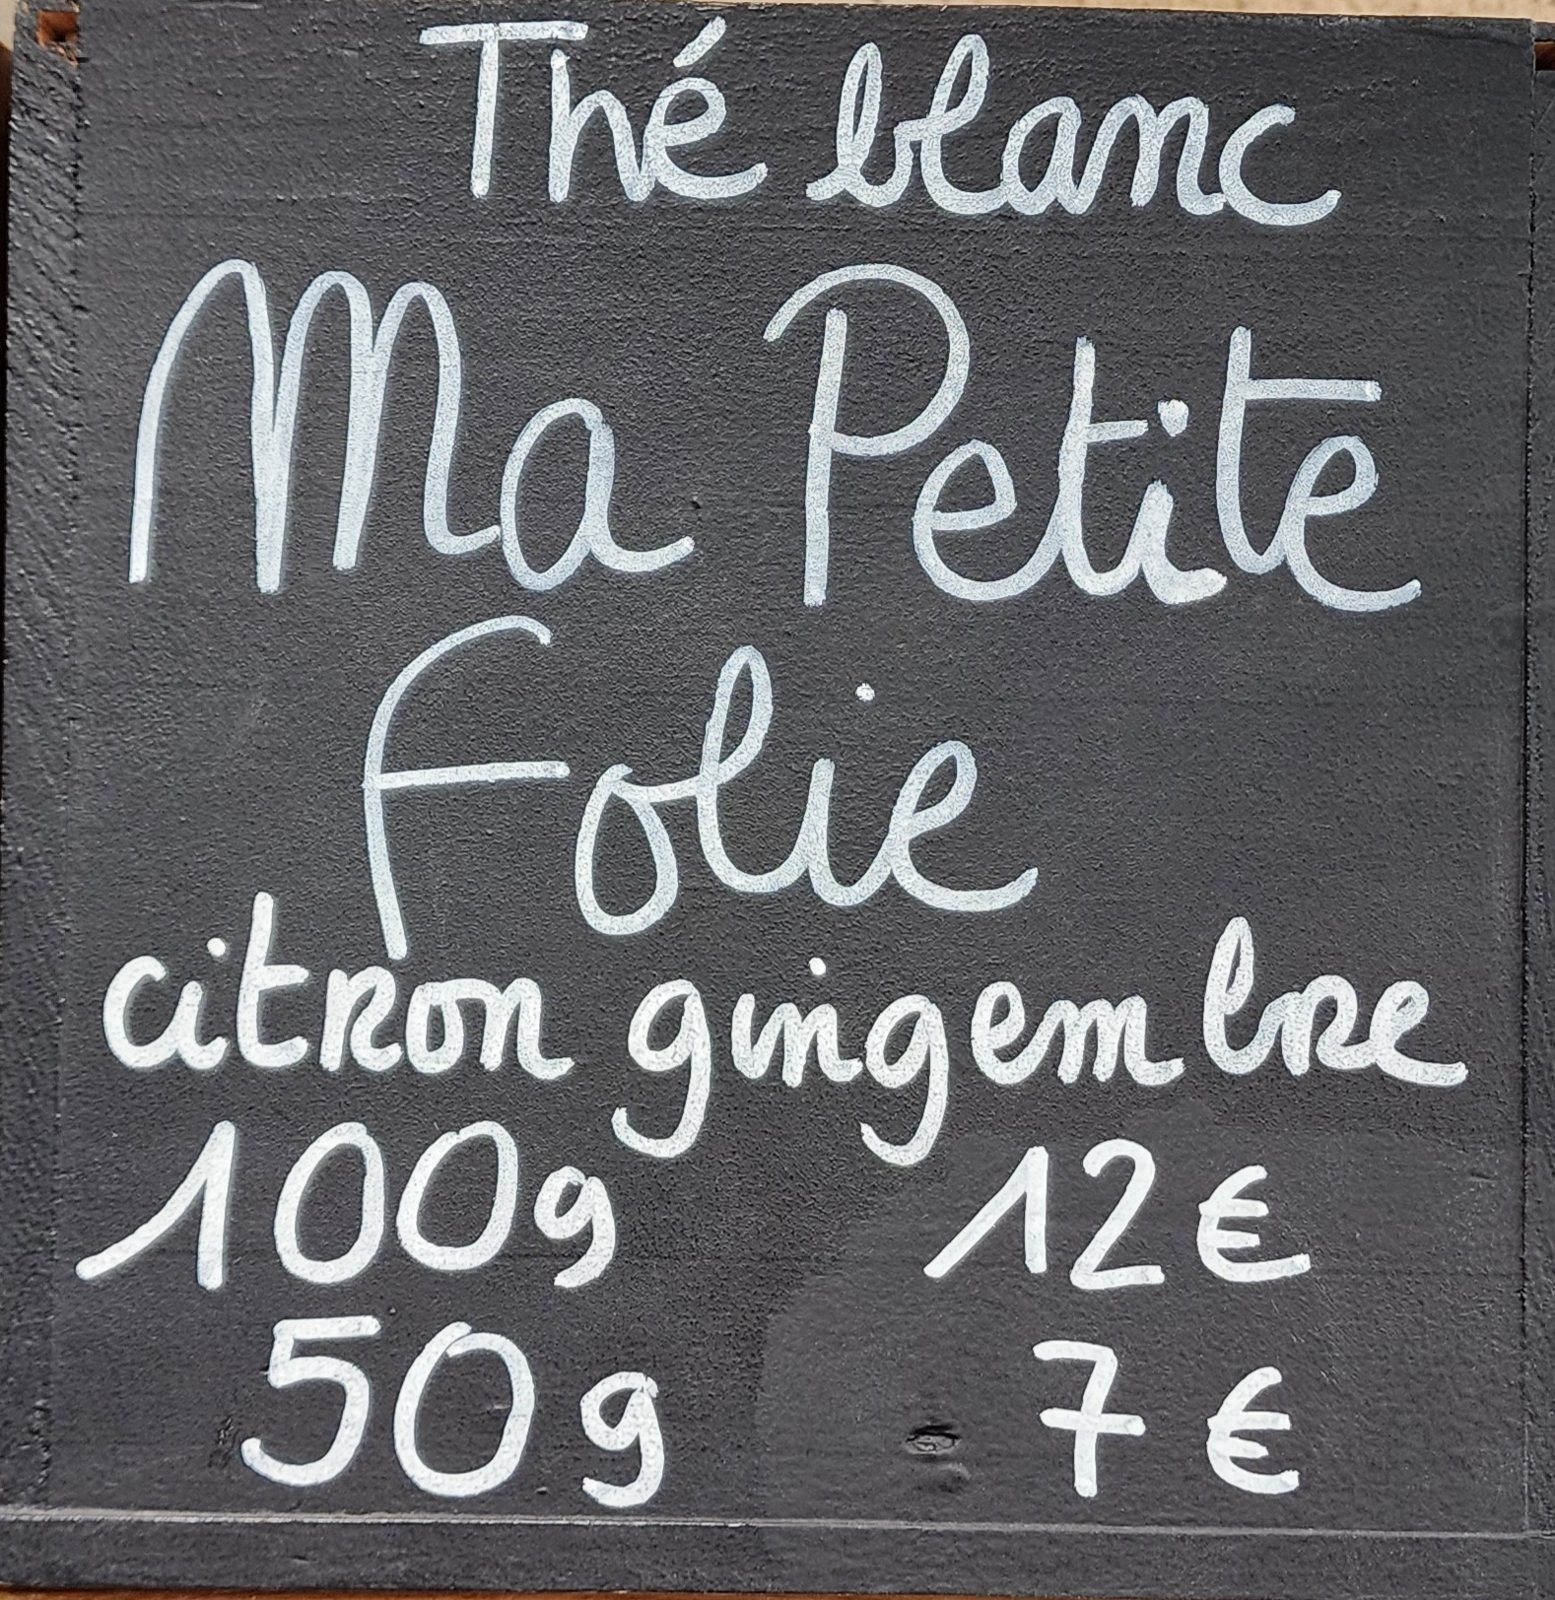 Thé blanc
Ma Petite
Folie
citron gingembre
100g 12€
50g 7€